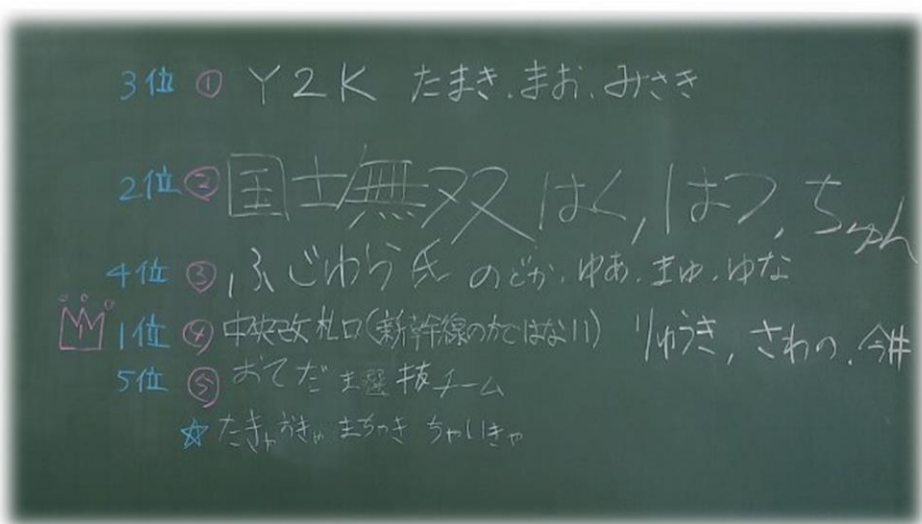 3位 ① Y2K たまき、まお、みさき
2位 ② 国士無双 はく, はつ, ちゃん
4位 ③ ふじわら氏 のどか、ゆあ、まゆ、ゆな
1位 ④ 中央改札口(新幹線の方ではない) りゅうき, さわの, 今井
5位 ⑤ おてだま選抜チーム
☆ たきゃおきゃ まちゃき ちゃいきゃ